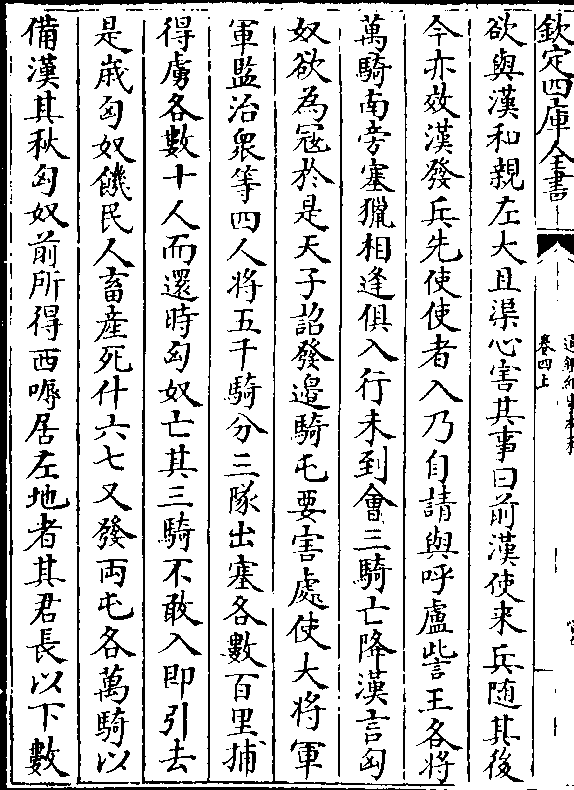 欽定四庫全書
卷四上
欲與漢和親左大且渠心害其事曰前漢使来兵随其後
今亦效漢發兵先使使者入乃自請與呼盧訾王各將
萬騎南旁塞獵相逢俱入行未到會三騎亡降漢言匈
奴欲為寇於是天子詔發邉騎屯要害處使大將軍
軍監治衆等四人将五千騎分三隊出塞各數百里捕
得虜各數十人而還時匈奴亡其三騎不敢入即引去
是歳匈奴饑民人畜産死什六七又發两屯各萬騎以
備漢其秋匈奴前所得西嗕居左地者其君長以下數